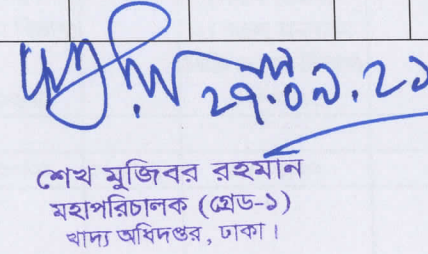 ২৭.০৯.২১
শেখ মুজিবর রহমান
মহাপরিচালক (গ্রেড-১)
খাদ্য অধিদপ্তর, ঢাকা।